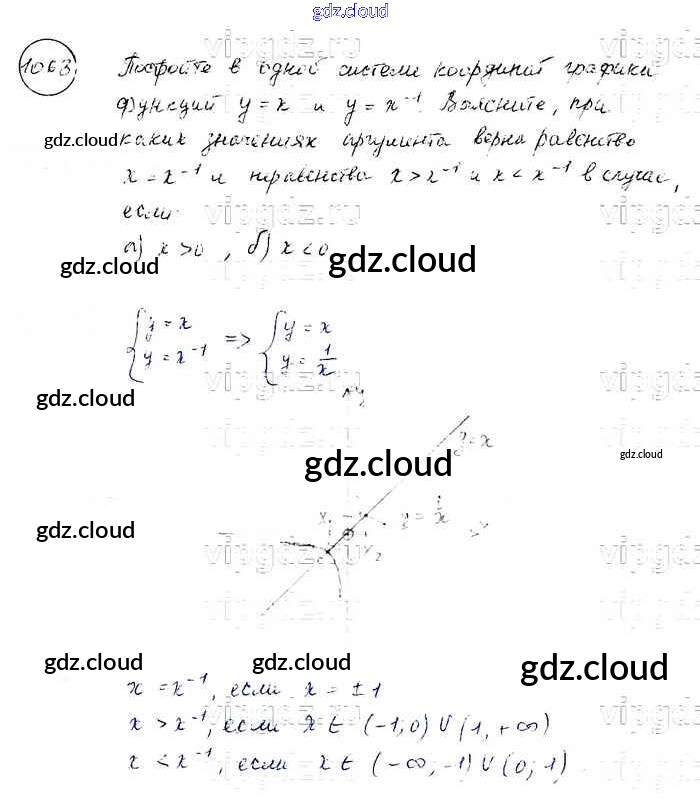 gdz.cloud
1063. Постройте в одной системе координат графики
функций y = x и y = x⁻¹. Выясните, при
каких значениях аргумента верна равенство
x = x⁻¹ и неравенства x > x⁻¹ и x < x⁻¹ в случае,
если
а) x > 0, б) x < 0
gdz.cloud
gdz.cloud
gdz.cloud
{y = x => {y = x
{y = x⁻¹ {y = 1/x
gdz.cloud
y
y = x
gdz.cloud
gdz.cloud
gdz.cloud
x₁ y = 1/x
x₂
gdz.cloud
gdz.cloud
gdz.cloud
x = x⁻¹, если x = ±1
x > x⁻¹, если x ∈ (-1; 0) ∪ (1, +∞)
x < x⁻¹, если x ∈ (-∞, -1) ∪ (0; 1)
vipgdz.ru